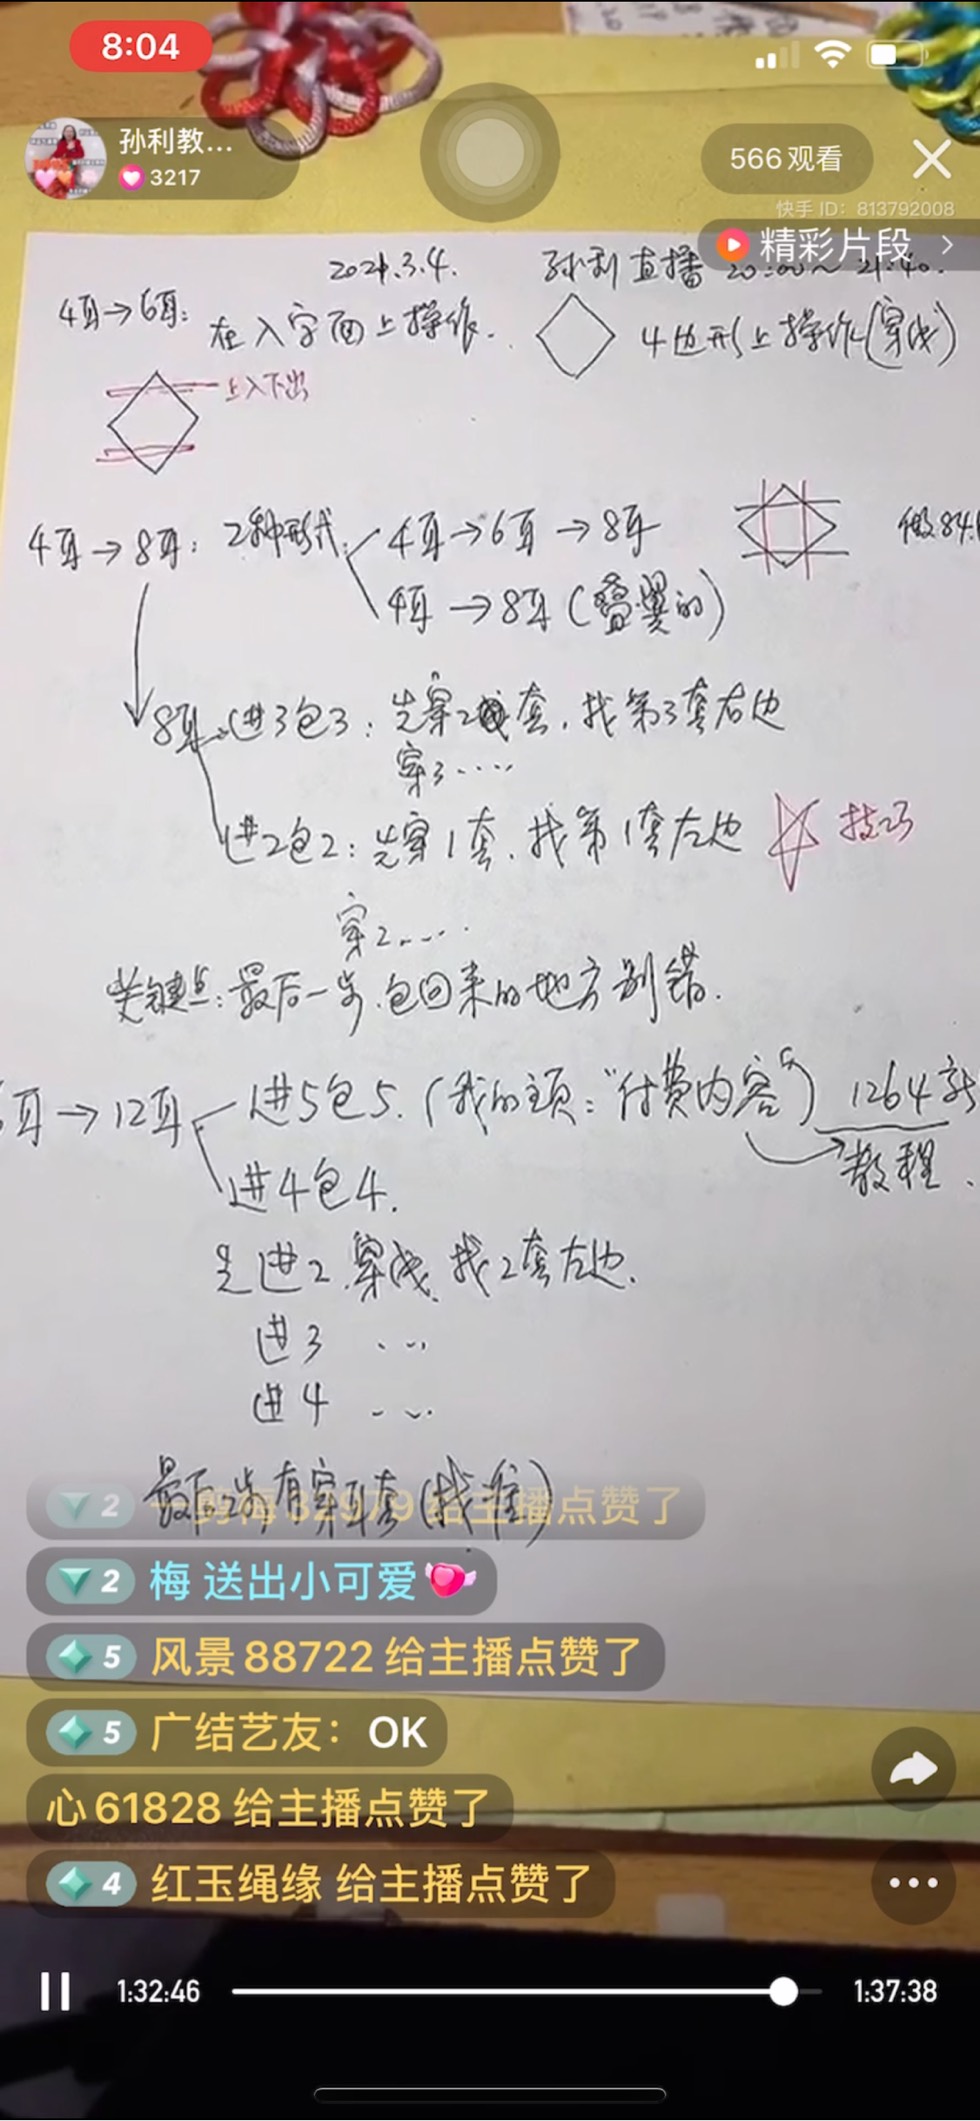 8:04
孙利教...
3217
566观看
快手 ID: 813792008
精彩片段
2021.3.4. 孙利直播 20:00～21:40.
4耳→6耳: 在入字面上操作. 4边形上操作(穿线)
上入下出
4耳→8耳: 2种形式 4耳→6耳→8耳
做84
4耳→8耳(叠翼的)
8耳 进3包3: 先穿2套, 找第3套右边
穿3....
进2包2: 先穿1套, 找第1套左边 技巧
穿2....
关键点: 最后一步, 包回来的地方别错.
耳→12耳 进5包5. (我的主页: "付费内容") 1264
教程.
进4包4.
先进2 穿线, 找2套左边.
进3 ...
进4 ...
最后2步, 有穿耳套(找准)
2 一剪梅32979 给主播点赞了
2 梅 送出小可爱
5 风景88722 给主播点赞了
5 广结艺友：OK
心61828 给主播点赞了
4 红玉绳缘 给主播点赞了
1:32:46
1:37:38